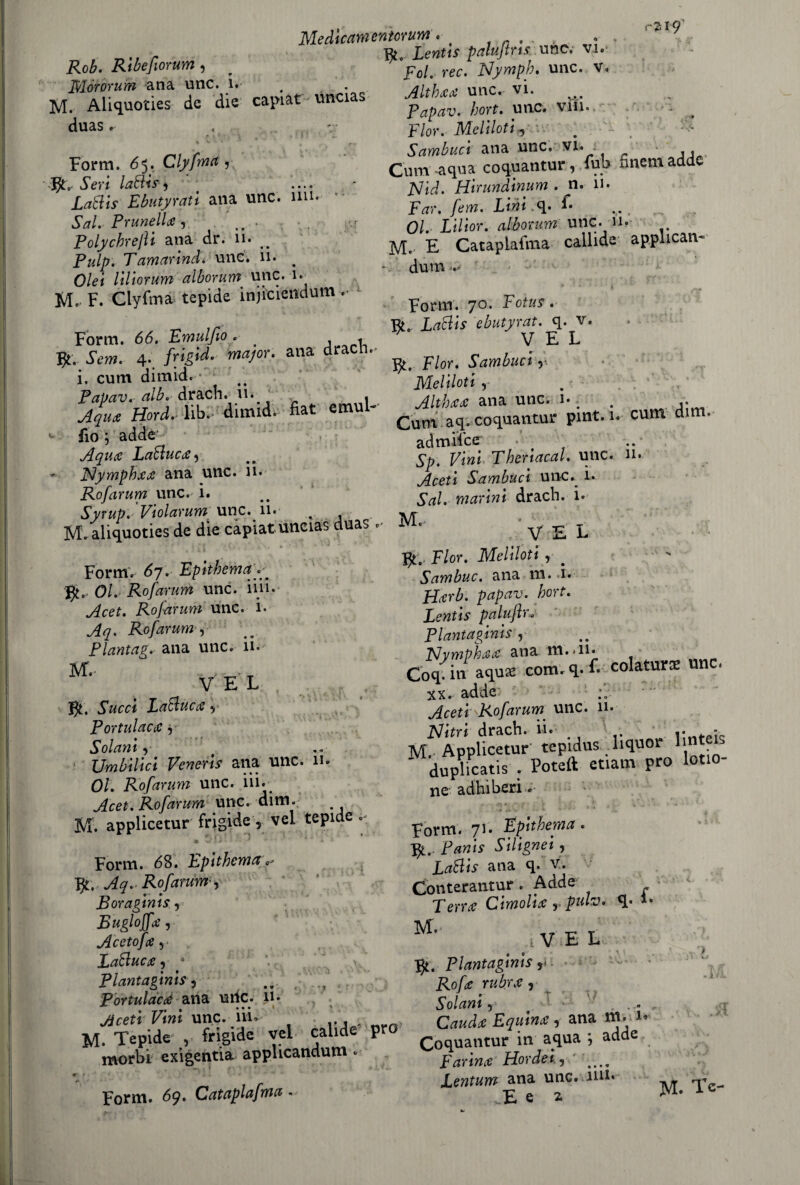 Medicamentorum. 219
Rob. Ribesiorum,
Mororum ana unc. i.
M. Aliquoties de die capiat uncias
duas.
Form. 65. Clysma,
℞. Seri lactis,
Lactis Ebutyrati ana unc. iiii.
Sal. Prunellæ,
Polychresti ana dr. ii.
Pulp. Tamarind. unc. ii.
Olei liliorum alborum unc. i.
M. F. Clysma tepide injiciendum.
Form. 66. Emulsio.
℞. Sem. 4. frigid. major. ana drach.
i. cum dimid.
Papav. alb. drach. ii.
Aquæ Hord. lib. dimid. fiat emul-
sio; adde
Aquæ Lactucæ,
Nymphææ ana unc. ii.
Rosarum unc. i.
Syrup. Violarum unc. ii.
M. aliquoties de die capiat uncias duas.
Form. 67. Epithema.
℞. Ol. Rosarum unc. iiii.
Acet. Rosarum unc. i.
Aq. Rosarum,
Plantag. ana unc. ii.
M.
VEL
℞. Succi Lactucæ,
Portulacæ,
Solani,
Umbilici Veneris ana unc. ii.
Ol. Rosarum unc. iii.
Acet. Rosarum unc. dim.
M. applicetur frigide, vel tepide.
Form. 68. Epithema.
℞. Aq. Rosarum,
Boraginis,
Buglossæ,
Acetosæ,
Lactucæ,
Plantaginis,
Portulacæ ana unc. ii.
Aceti Vini unc. iii.
M. Tepide, frigide vel calide pro
morbi exigentia applicandum.
Form. 69. Cataplasma.
℞. Lentis palustris unc. vi.
Fol. rec. Nymph. unc. v.
Althææ unc. vi.
Papav. hort. unc. viii.
Flor. Meliloti,
Sambuci ana unc. vi.
Cum aqua coquantur, sub finem adde
Nid. Hirundinum. n. ii.
Far. sem. Lini q. s.
Ol. Lilior. alborum unc. ii.
M. E Cataplasma callide applican-
dum.
Form. 70. Fotus.
℞. Lactis ebutyrat. q. v.
VEL
℞. Flor. Sambuci,
Meliloti,
Althææ ana unc. i.
Cum aq. coquantur pint. i. cum dim.
admisce
Sp. Vini Theriacal. unc. ii.
Aceti Sambuci unc. i.
Sal. marini drach. i.
M.
VEL
℞. Flor. Meliloti,
Sambuc. ana m. i.
Hærb. papav. hort.
Lentis palustr.
Plantaginis,
Nymphææ ana m. ii.
Coq. in aquæ com. q. s. colaturæ unc.
xx. adde
Aceti Rosarum unc. ii.
Nitri drach. ii.
M. Applicetur tepidus liquor linteis
duplicatis. Potest etiam pro lotio-
ne adhiberi.
Form. 71. Epithema.
℞. Panis Silignei,
Lactis ana q. v.
Conterantur. Adde
Terræ Cimoliæ, pulv. q. s.
M.
VEL
℞. Plantaginis,
Rosæ rubræ,
Solani,
Caudæ Equinæ, ana m. i.
Coquantur in aqua; adde
Farinæ Hordei,
Lentum ana unc. iiii.
E e 2
M. Te-